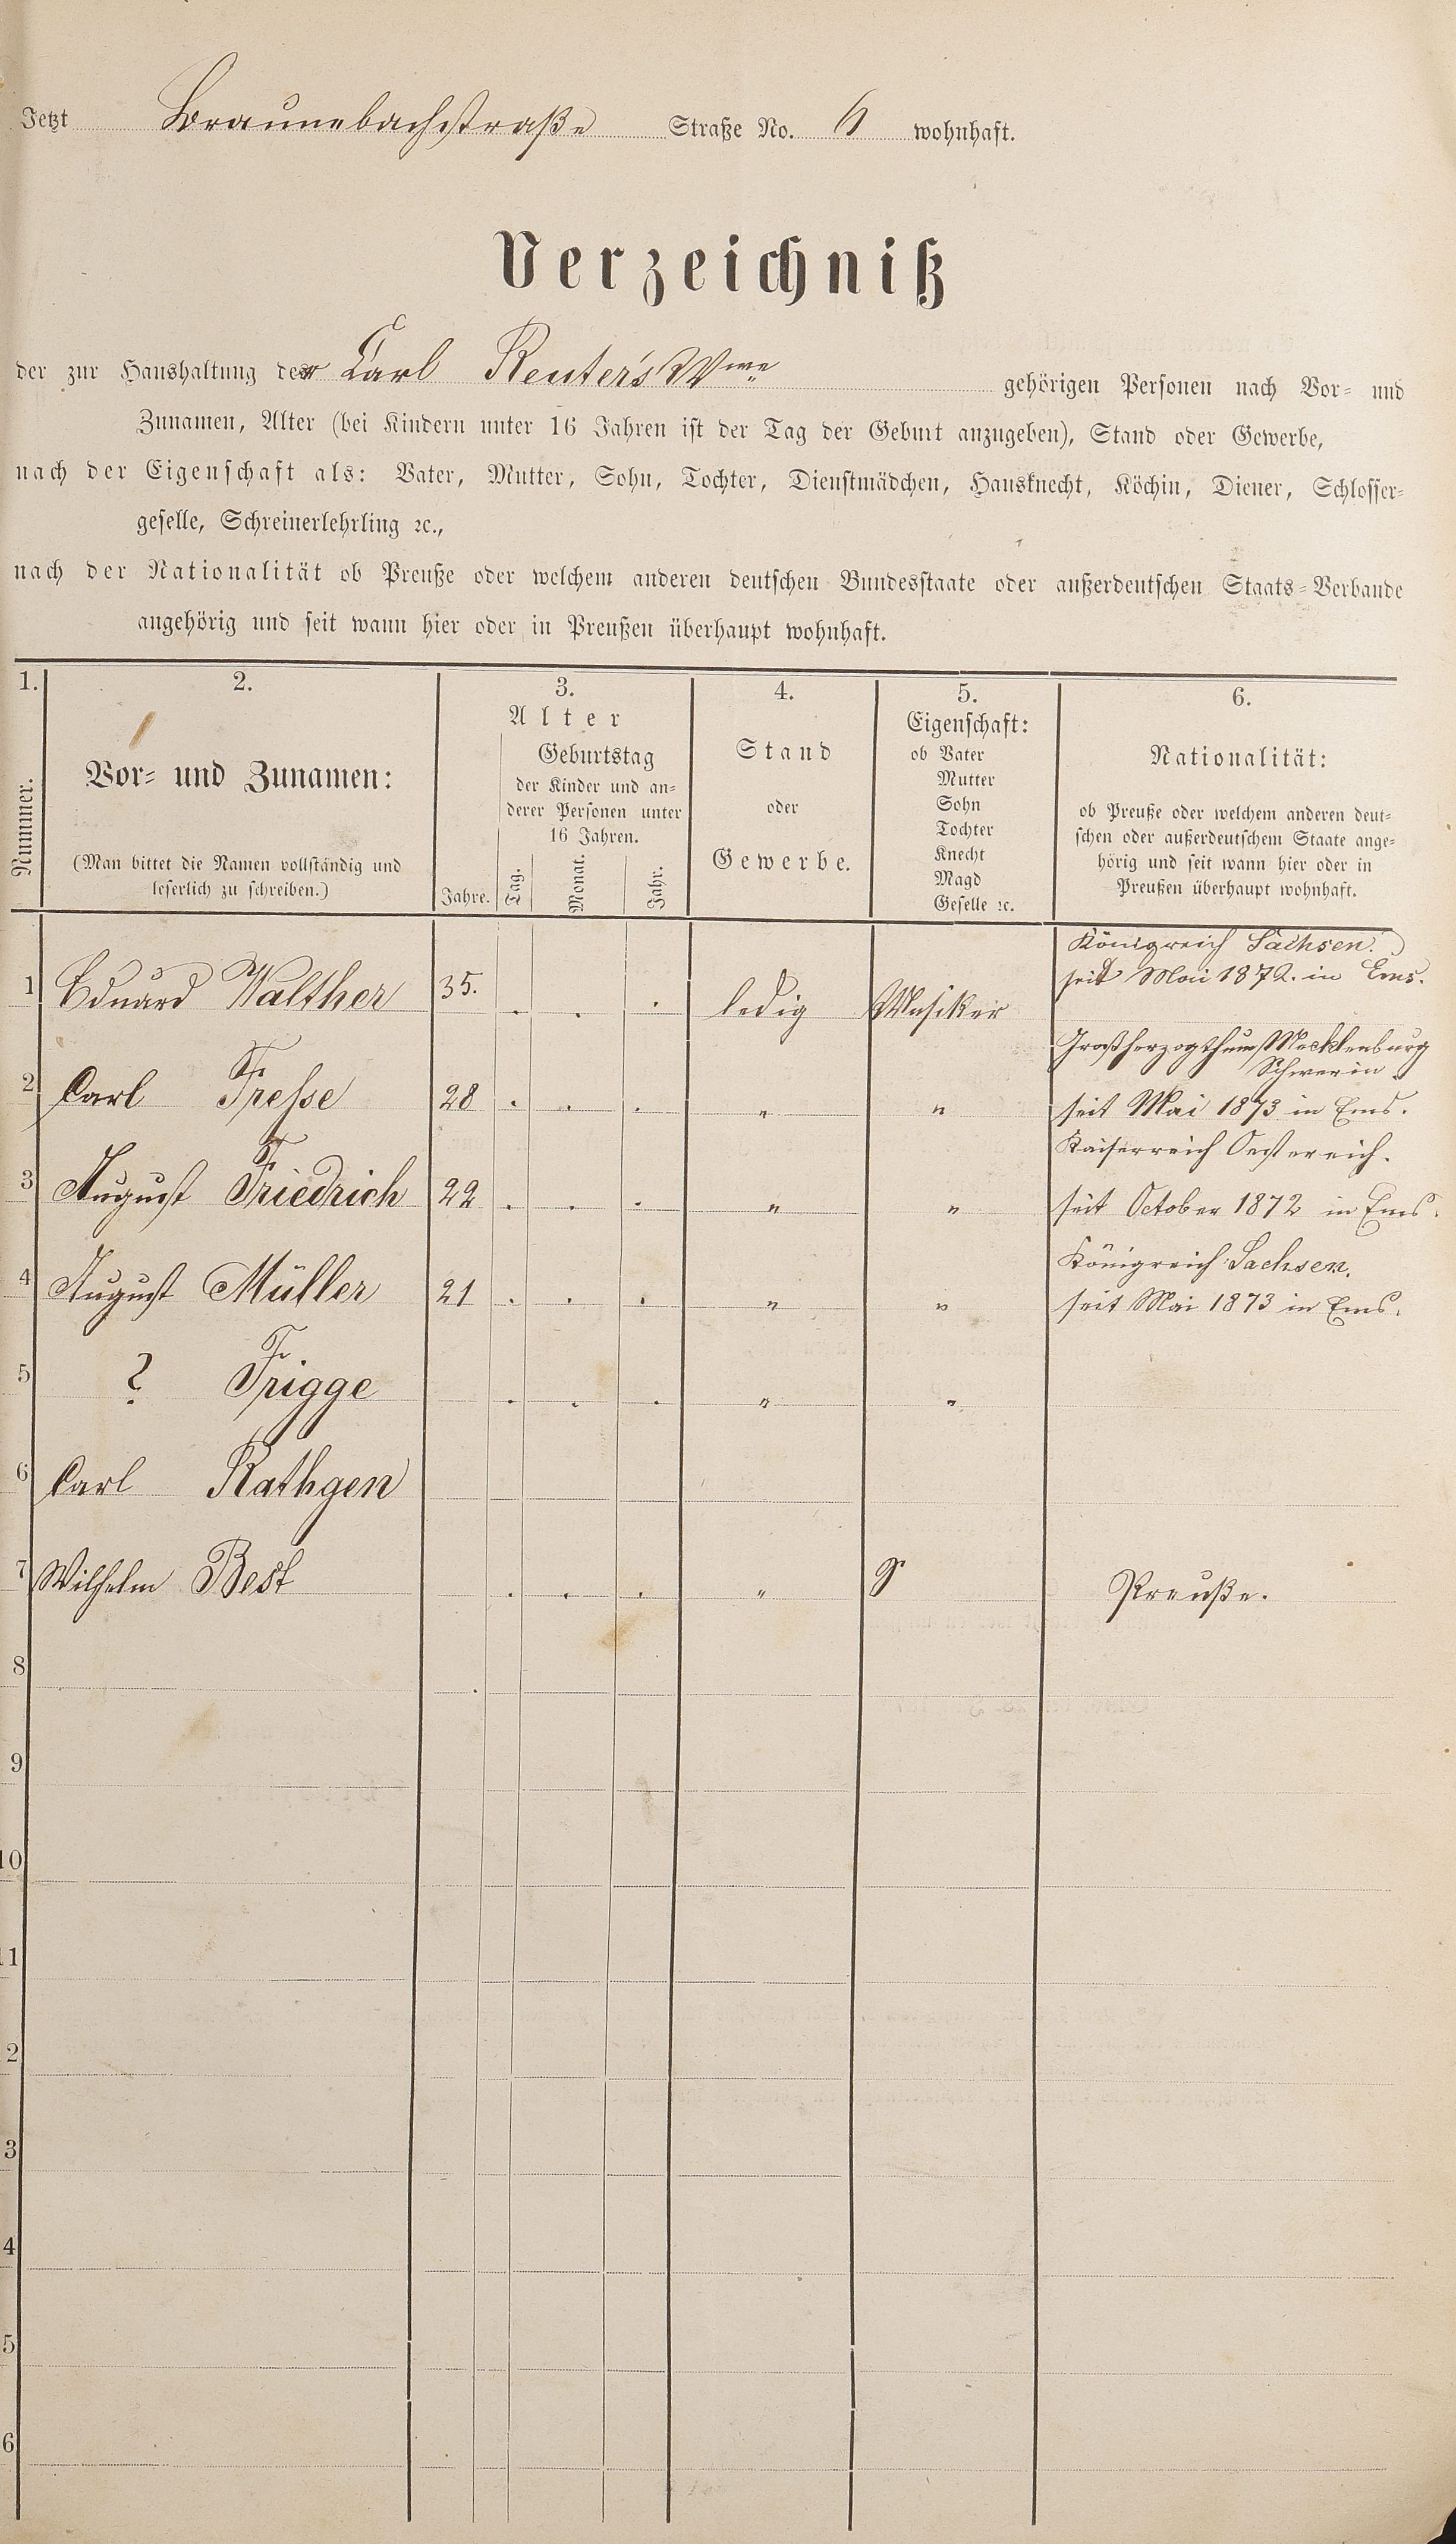 Jetzt Braunebachstraße Straße No. 6 wohnhaft.
Verzeichniß
der zur Haushaltung der Carl Reuter's Wwe gehörigen Personen nach Vor- und
Zunamen, Alter (bei Kindern unter 16 Jahren ist der Tag der Geburt anzugeben), Stand oder Gewerbe,
nach der Eigenschaft als: Vater, Mutter, Sohn, Tochter, Dienstmädchen, Hausknecht, Köchin, Diener, Schlosser-
geselle, Schreinerlehrling ꝛc.,
nach der Nationalität ob Preuße oder welchem anderen deutschen Bundesstaate oder außerdeutschen Staats-Verbande
angehörig und seit wann hier oder in Preußen überhaupt wohnhaft.
1. 2. 3. 4. 5. 6.
Nummer.
Vor- und Zunamen:
(Man bittet die Namen vollständig und
leserlich zu schreiben.)
Alter
Jahre.
Geburtstag
der Kinder und an-
derer Personen unter
16 Jahren.
Tag. Monat. Jahr.
Stand
oder
Gewerbe.
Eigenschaft:
ob Vater
Mutter
Sohn
Tochter
Knecht
Magd
Geselle ꝛc.
Nationalität:
ob Preuße oder welchem anderen deut-
schen oder außerdeutschem Staate ange-
hörig und seit wann hier oder in
Preußen überhaupt wohnhaft.
Königreich Sachsen.
1 Eduard Walther 35. . . . ledig Musiker seit Mai 1872. in Ems.
Großherzogthum Mecklenburg
Schwerin
2 Carl Fresse 28 . . . " " seit Mai 1873 in Ems.
Kaiserreich Oestereich.
3 August Friedrich 22 . . . " " seit October 1872 in Ems.
Königreich Sachsen.
4 August Müller 21 . . . " " seit Mai 1873 in Ems.
5 ? Frigge . . . " "
6 Carl Rathgen
7 Wilhelm Best . . . " Preuße.
8
9
10
11
2
3
4
5
6